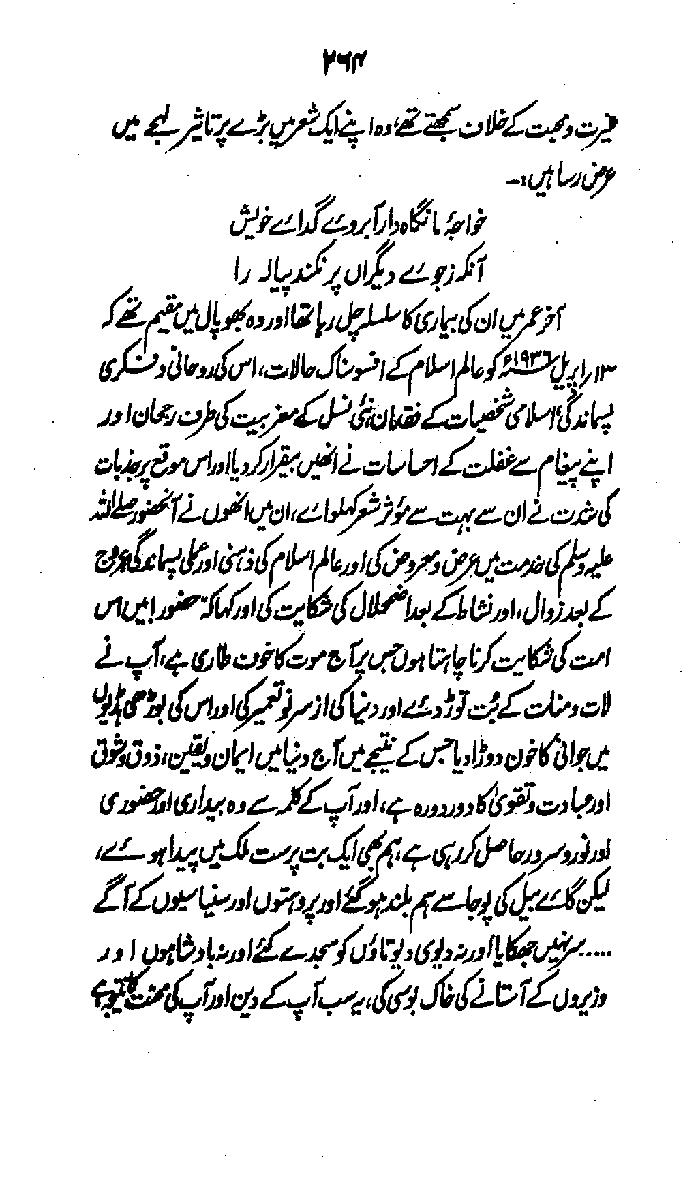 ۲۶۴
غیرت و محبت کے خلاف سمجھتے تھے، وہ اپنے ایک شعر میں بڑے پر تاثیر لہجے میں
عرض رسا ہیں:۔
خواجۂ ما نگاہ دار آبروے گداے خویش
آنکہ ز جوے دیگراں پر نکند پیالہ را
آخر عمر میں ان کی بیماری کا سلسلہ چل رہا تھا اور وہ بھوپال میں مقیم تھے کہ
۱۳ اپریل ۱۹۳۶ء کو عالم اسلام کے افسوناک حالات، اس کی روحانی و فکری
پسماندگی، اسلامی شخصیات کے فقدان، نئی نسل کے مغربیت کی طرف رجحان اور
اپنے پیغام سے غفلت کے احساسات نے انھیں بیقرار کر دیا اور اس موقع پر جذبات
کی شدت نے ان سے بہت سے مؤثر شعر کہلوائے، ان میں انھوں نے آنحضور صلے اللہ
علیہ وسلم کی خدمت میں عرض و معروض کی اور عالم اسلام کی ذہنی اور عملی پسماندگی، عروج
کے بعد زوال، اور نشاط کے بعد اضمحلال کی شکایت کی اور کہا کہ حضور! میں اس
امت کی شکایت کرنا چاہتا ہوں جس پر آج موت کا خوف طاری ہے، آپ نے
لات و منات کے بُت توڑ دئے اور دنیا کی از سر نو تعمیر کی اور اس کی بوڑھی ہڈیوں
میں جوانی کا خون دوڑا دیا جس کے نتیجے میں آج دنیا میں ایمان و یقین، ذوق و شوق
اور عبادت و تقویٰ کا دور دورہ ہے، اور آپ کے کلمہ سے وہ بیداری اور حضوری
اور نور و سرور حاصل کر رہی ہے، ہم بھی ایک بت پرست ملک میں پیدا ہوئے،
لیکن گائے بیل کی پوجا سے ہم بلند ہو گئے اور پروہتوں اور سنیاسیوں کے آگے
..... سر نہیں جھکایا اور نہ دیوی دیوتاؤں کو سجدے کئے اور نہ بادشاہوں اور
وزیروں کے آستانے کی خاک بوسی کی، یہ سب آپ کے دین اور آپ کی محنت کا نتیجہ ہے